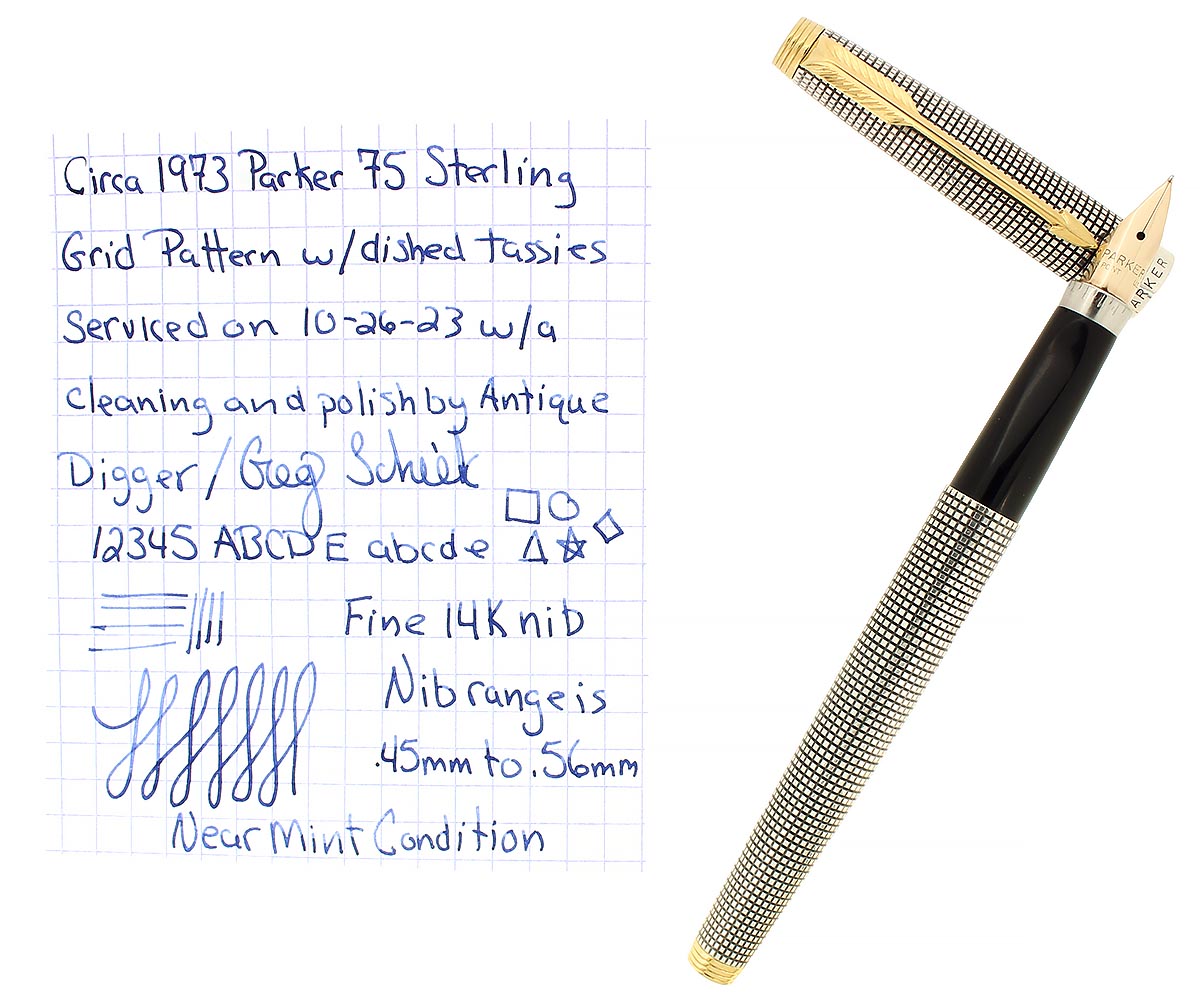 Circa 1973 Parker 75 Sterling
Grid Pattern w/dished tassies
Serviced on 10-26-23 w/a
cleaning and polish by Antique
Digger/Greg
12345 ABCDE abcde
Fine 14K nib
Nib range is
.45mm to .56mm
Near Mint Condition
PARKER
ARKER